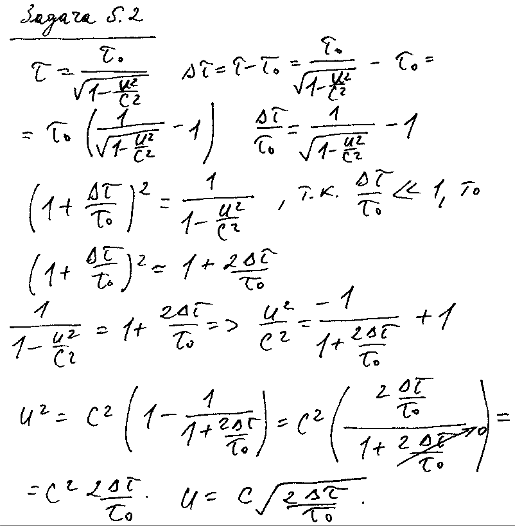 Задача 5.2
τ = τ₀ / √(1 − u²/c²)   Δτ = τ − τ₀ = τ₀ / √(1 − u²/c²) − τ₀ =
= τ₀ (1 / √(1 − u²/c²) − 1)   Δτ/τ₀ = 1 / √(1 − u²/c²) − 1
(1 + Δτ/τ₀)² = 1 / (1 − u²/c²), т.к. Δτ/τ₀ ≪ 1, то
(1 + Δτ/τ₀)² ≈ 1 + 2Δτ/τ₀
1 / (1 − u²/c²) = 1 + 2Δτ/τ₀ => u²/c² = −1 / (1 + 2Δτ/τ₀) + 1
u² = c² (1 − 1 / (1 + 2Δτ/τ₀)) = c² (2 Δτ/τ₀ / (1 + 2Δτ/τ₀ → 0)) =
= c² 2Δτ/τ₀.   u = c √(2Δτ/τ₀).